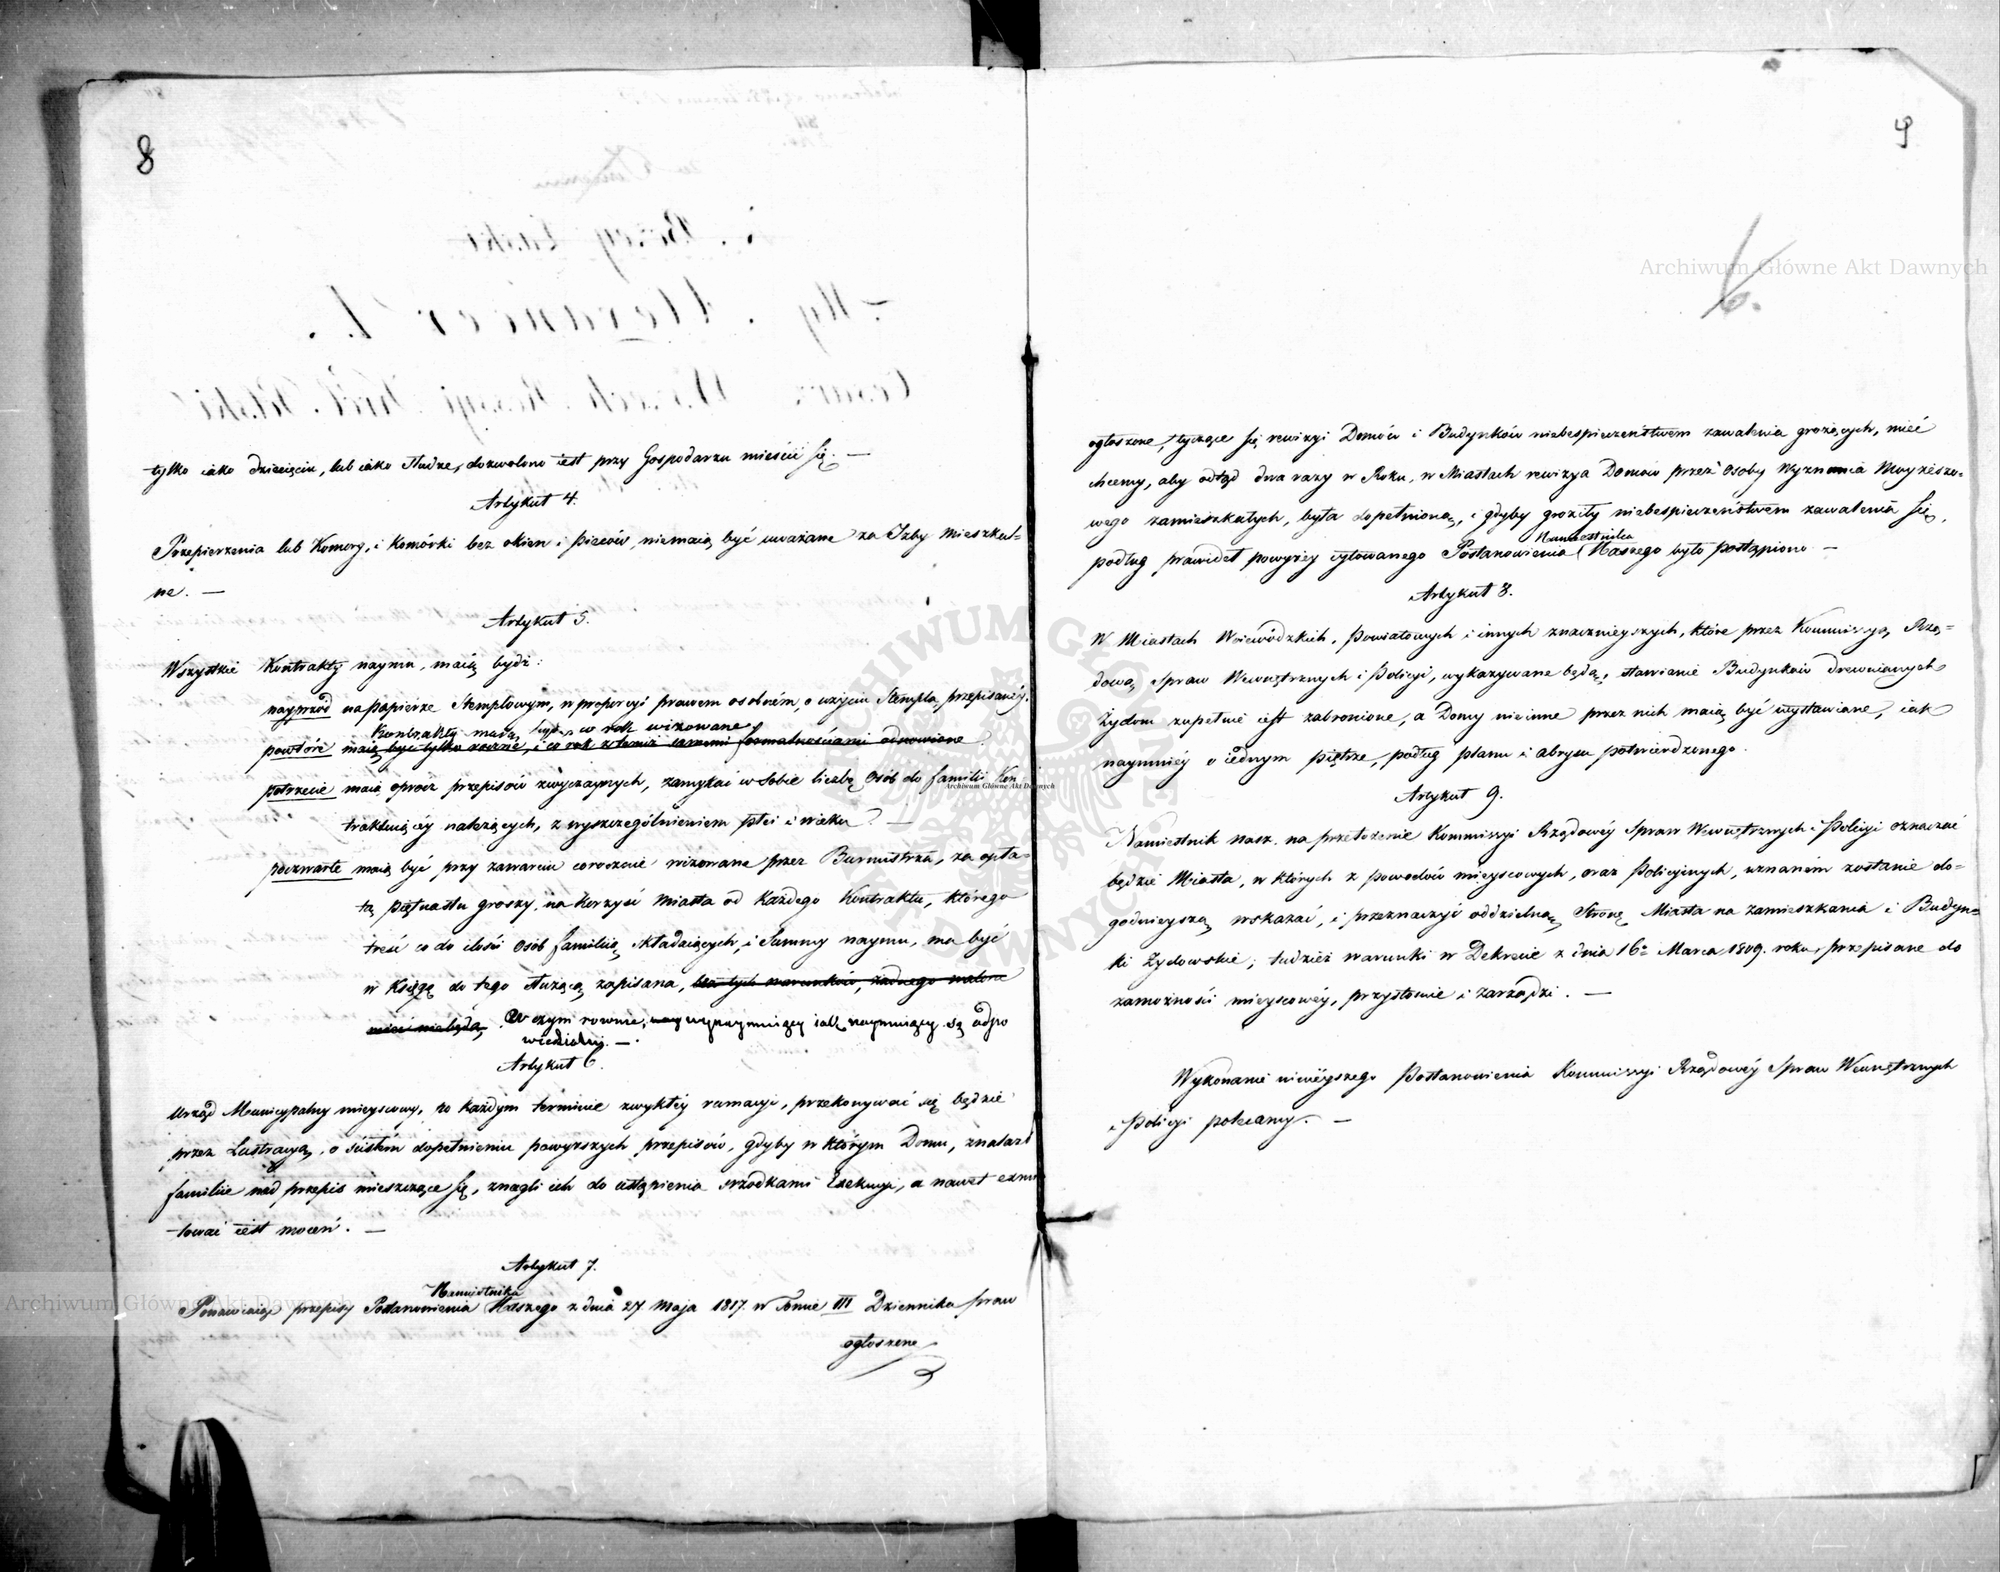 8
tylko iako dziecięciu, lub iako słudze, dozwolono iest przy Gospodarzu mieścić się. —
Artykuł 4.
Przepierzenia lub Komory, i Komórki bez okien i pieców, niemaią być uważane za Izby mieszkal=
ne. —
Artykuł 5.
Wszystkie Kontrakty naymu, maią bydź:
nayprzód na papierze Stemplowym, w proporcyi prawem osobném, o użyciu Stempla, przepisanéy.
Kontrakty maią być co rok wizowane
powtóre maią być tylko roczne, i co rok z temiż samemi formalnościami odnowione
potrzecie maią oprócz przepisów zwyczaynych, zamykać w sobie liczbę Osób do familii Kon
traktuiącéy należących, z wyszczególnieniem płci i wieku. —
poczwarte maią być przy zawarciu corocznie wizowane przez Burmistrza, za opła=
tą piętnastu groszy, na korzyść Miasta od Każdego Kontraktu, którego
treść co do ilości Osób familiią składaiących, i Summy naymu, ma być
w Księgę do tego służącą zapisana, bez tych warunków, żadnego waloru
mieć niebędą. W czym rownie, wynaymuiący iak naymuiący są odpo
wiedzialni. —
Artykuł 6.
Urząd Municypalny mieyscowy, po każdym terminie zwykłéy rumacyi, przekonywać się będzie
przez Lustracyą, o ścisłém dopełnieniu powyższych przepisów, gdyby w którym Domu, znalazł
familiie nad przepis mieszczące się, znagli ich do ustąpienia srzodkami Exekucyi, a nawet exmi
tować iest mocen. —
Artykuł 7.
Namiestnika
Ponawiaiąc przepisy Postanowienia Naszego z dnia 27 Maja 1817. w Tomie III Dziennika praw
ogłoszone
9
6.
ogłoszone, tyczące się rewizyi Domów i Budynków niebespieczeństwem zawalenia grożących, mieć
chcemy, aby odtąd dwa razy w Roku, w Miastach rewizya Domów przez Osoby Wyznania Moyżeszo=
wego zamieszkałych, była dopełnioną, i gdyby groziły niebespieczeństwem zawalenia się,
Namiestnika
podług prawideł powyżéy cytowanego Postanowienia Naszego było postąpiono. —
Artykuł 8.
W Miastach Woiewódzkich, Powiatowych i innych znacznieyszych, które przez Kommissyą Rzą=
dową Spraw Wewnętrznych i Policyi, wykazywane będą, stawianie Budynków drewnianych
Żydom zupełnie iest zabronione, a Domy nieinne przez nich maią być wystawiane, iak
naymniéy o iednym piętrze, podług planu i abrysu potwierdzonego.
Artykuł 9.
Namiestnik nasz na przełożenie Kommissyi Rządowéy Spraw Wewnętrznych i Policyi oznaczać
będzie Miasta, w których z powodów mieyscowych, oraz Policyinych, uznaném zostanie do=
godnieyszą wskazać, i przeznaczyć oddzielną Stronę Miasta na zamieszkania i Budyn=
ki Żydowskie; tudzież warunki w Dekrecie z dnia 16o Marca 1809. roku, przepisane do
zamożności mieyscowéy, przystosuie i zarządzi. —
Wykonanie ninieyszego Postanowienia Kommissyi Rządowéy Spraw Wewnętrznych
i Policyi polecamy. —
Archiwum Główne Akt Dawnych
Archiwum Główne Akt Dawnych
Archiwum Główne Akt Dawnych
ARCHIWUM GŁÓWNE AKT DAWNYCH